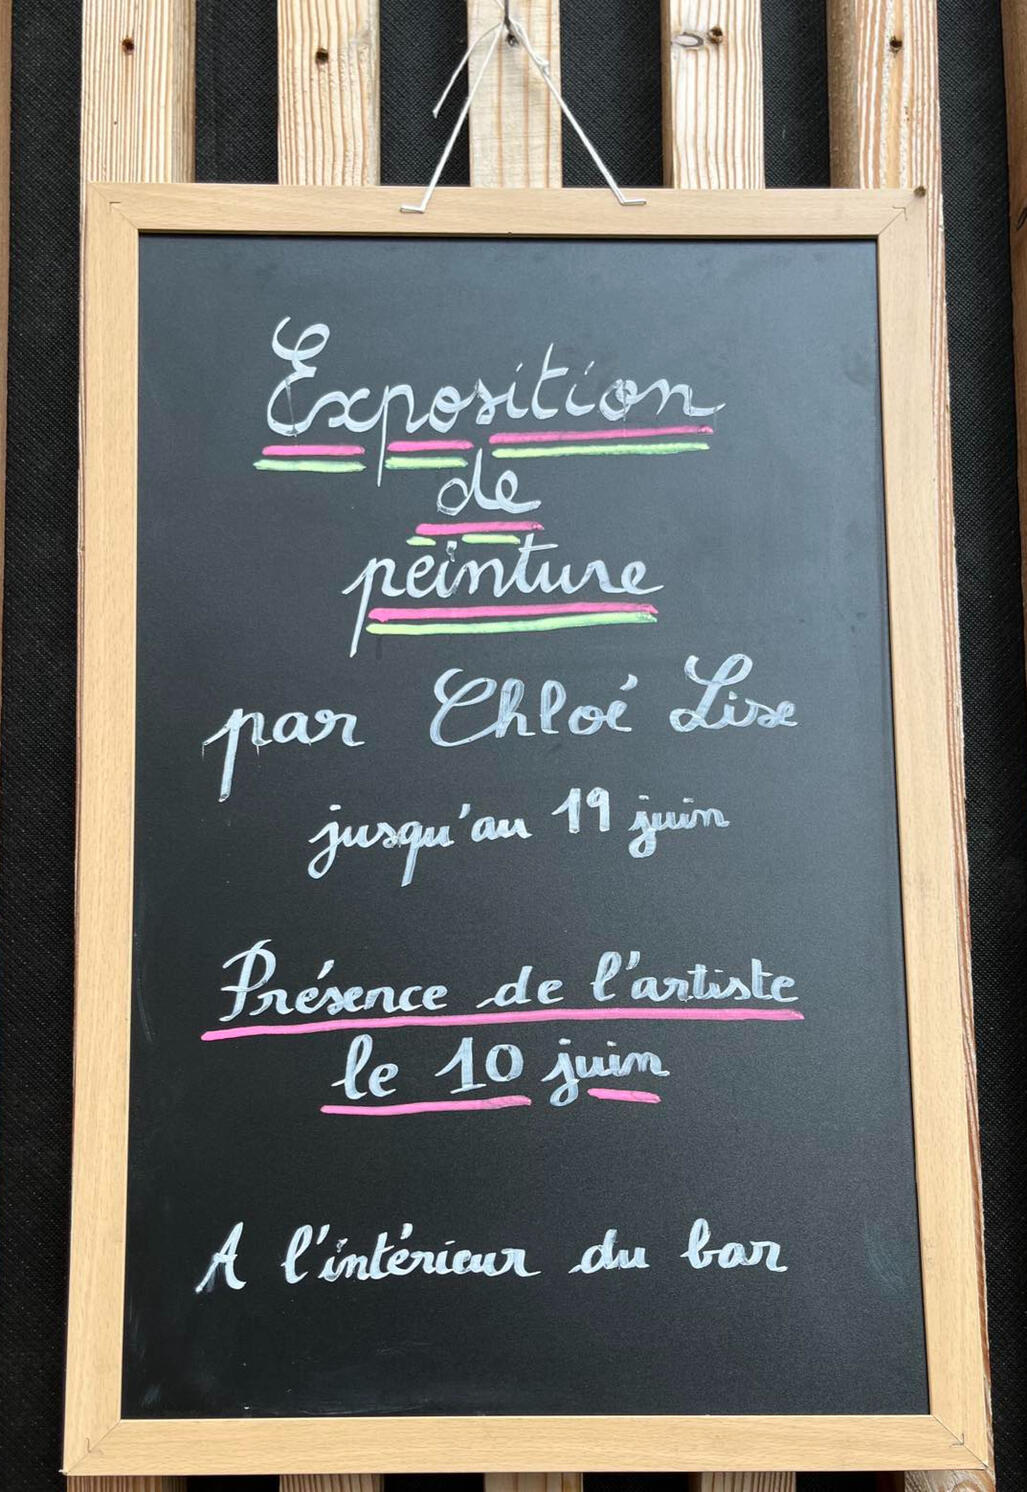 Exposition
de
peinture
par Chloé Lise
jusqu'au 19 juin
Présence de l'artiste
le 10 juin
A l'intérieur du bar